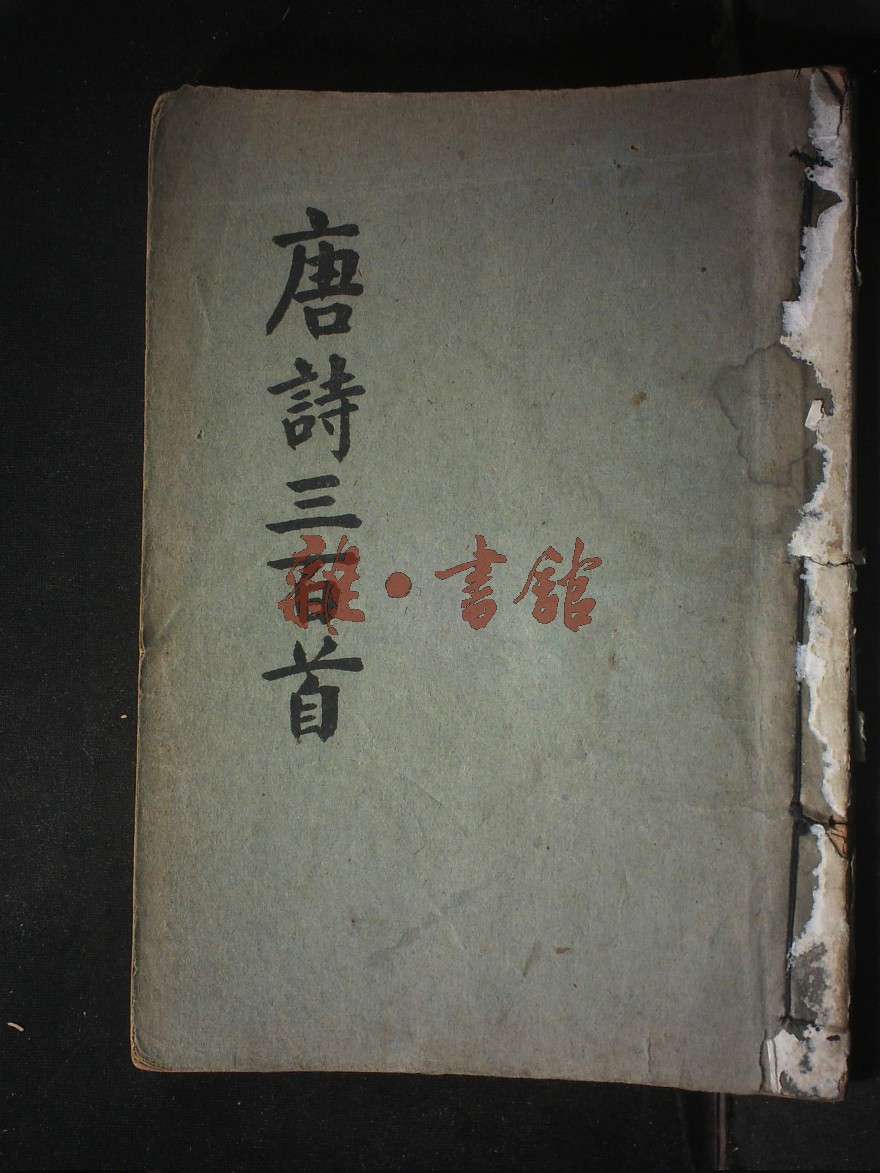 唐詩三百首
雜·書館